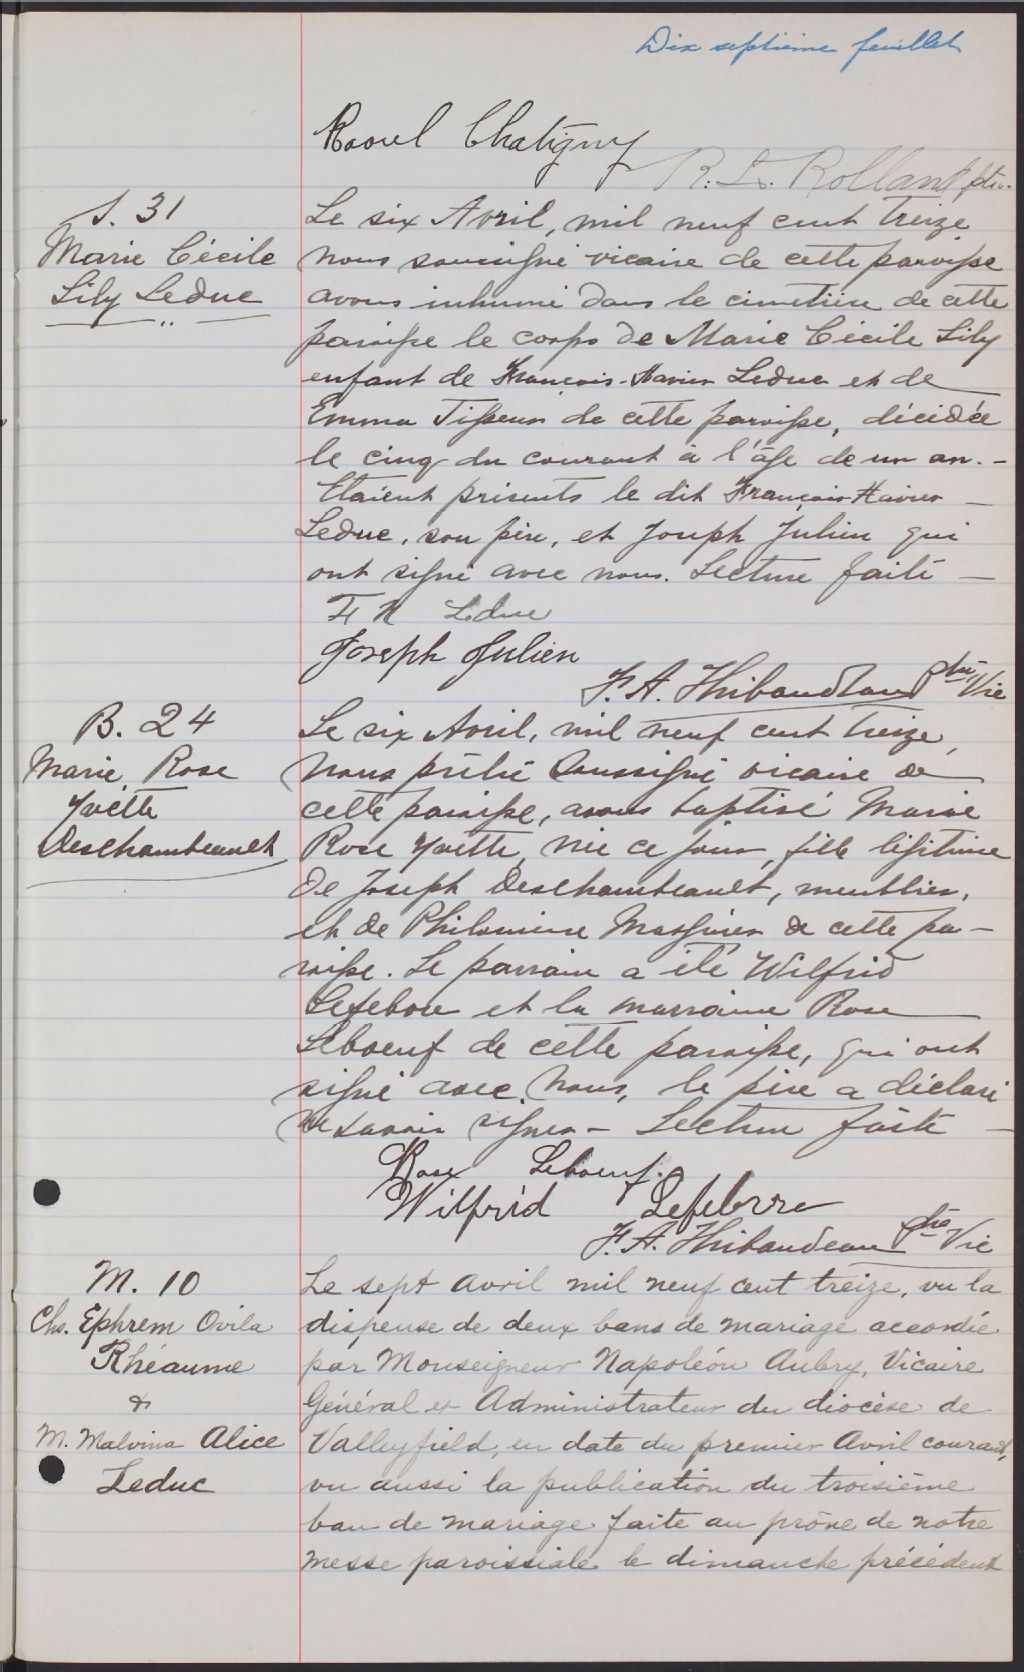 Dix septième feuillet
Raoul Chatigny
R. L. Rolland ptre.
S. 31
Marie Cécile
Lily Leduc
Le six Avril, mil neuf cent treize
nous soussigné vicaire de cette paroisse
avons inhumé dans le cimetière de cette
paroisse le corps de Marie Cécile Lily
enfant de François-Xavier Leduc et de
Emma Tisseur de cette paroisse, décédée
le cinq du courant à l'âge de un an. -
Etaient présents le dit François Xavier
Leduc, son père, et Joseph Julien qui
ont signé avec nous. Lecture faite —
F X Leduc
Joseph Julien
F. A. Thibaudeau ptre Vic
B. 24
Marie Rose
Yvette
Deschambeault
Le six Avril, mil neuf cent treize,
Nous prêtre soussigné vicaire de
cette paroisse, avons baptisé Marie
Rose Yvette, née ce jour, fille légitime
de Joseph Deschambeault, meublier,
et de Philomène de cette pa-
roisse. Le parrain a été Wilfrid
Lefebvre et la marraine Rose
Leboeuf de cette paroisse, qui ont
signé avec Nous, le père a déclaré
ne savoir signer - Lecture faite —
Rose Leboeuf.
Wilfrid Lefebvre
F. A. Thibaudeau ptre Vic
M. 10
Chs. Ephrem Ovila
Rhéaume
&
M. Malvina Alice
Leduc
Le sept avril mil neuf cent treize, vu la
dispense de deux bans de mariage accordée
par Monseigneur Napoléon Aubry, Vicaire
Général et Administrateur du diocèse de
Valleyfield, en date du premier Avril courant,
vu aussi la publication du troisième
ban de mariage faite au prône de notre
messe paroissiale le dimanche précédent